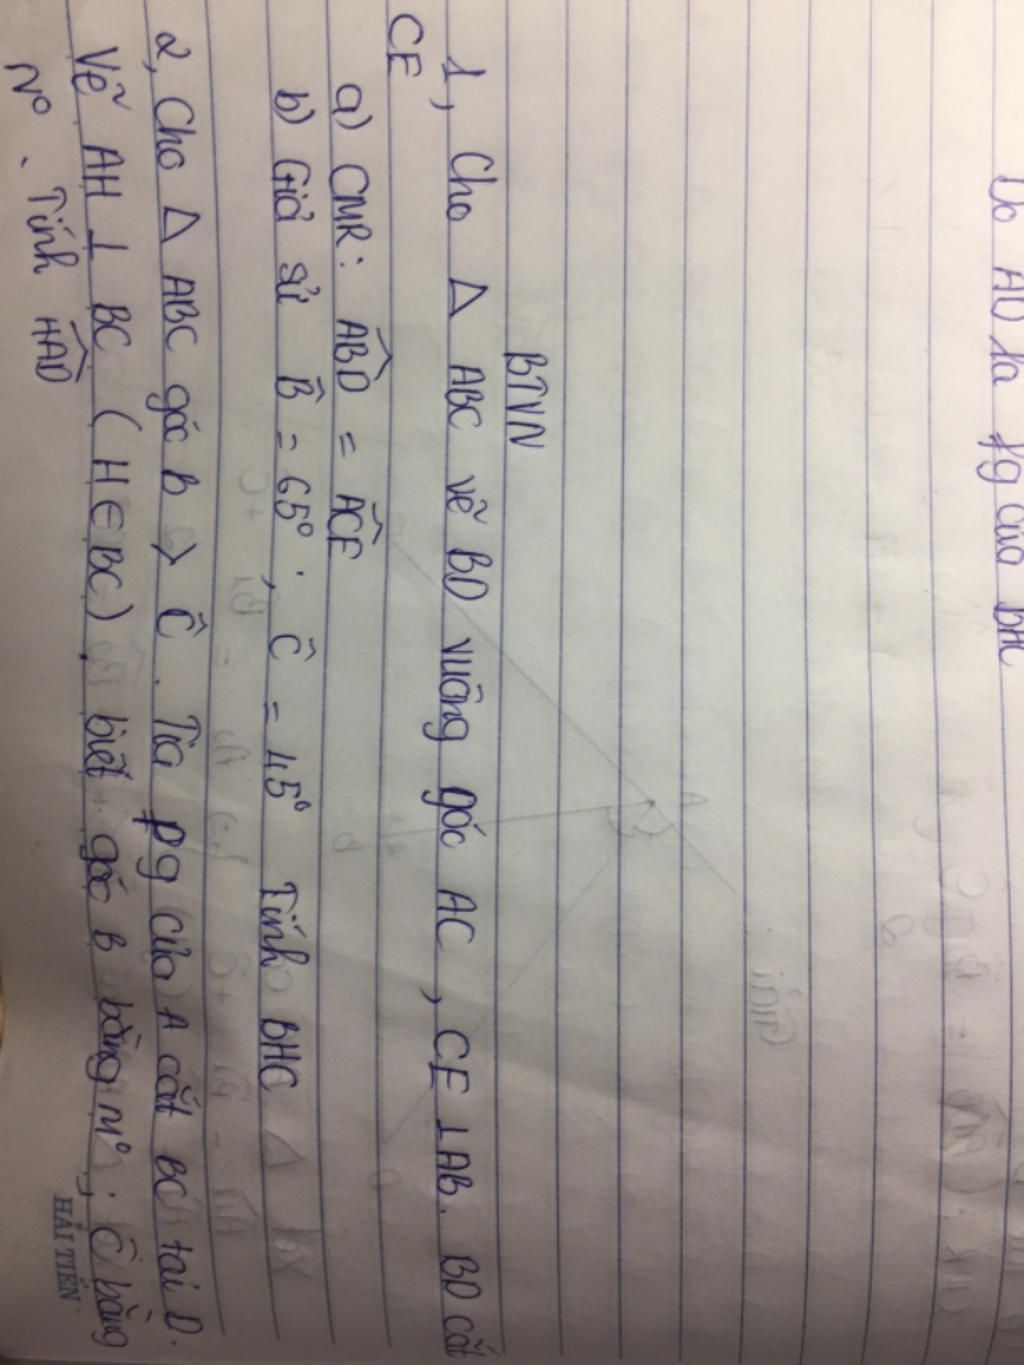 Do AD là pg của BAC
BTVN
1, Cho Δ ABC vẽ BD vuông góc AC, CE ⊥ AB. BD cắt
CE
a) CMR: ABD = ACE
b) Giả sử B̂ = 65°, Ĉ = 45° Tính BHC
2, Cho Δ ABC góc B > Ĉ. Tia pg của A cắt BC tại D.
Vẽ AH ⊥ BC (H ∈ BC). biết góc B bằng m°; Ĉ bằng
n°. Tính HAD
HẢI TIẾN